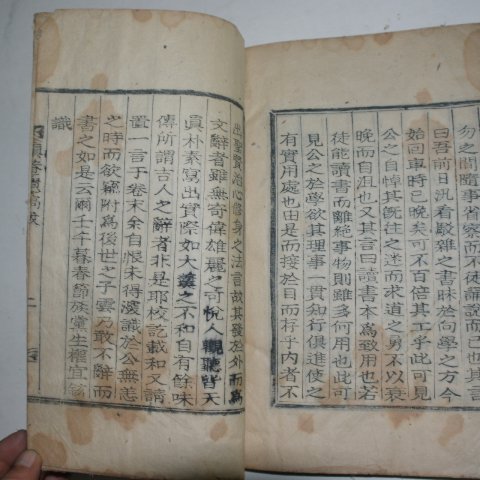 勿之間隨事省察而不但言說而已也其言
曰吾前日況看駁雜之書昧於向學之方今
始回車時已晚矣可不百倍其工乎此可見
公之自悼其旣往之迷而求道之勇不以衰
晚而自沮也又其言曰讀書本爲致用也若
徒能讀書而離絶事物則雖多何用也此可
見公之於學欲其理事一貫知行俱進使之
有實用處也由是而接於目而存乎內者不
出聖賢治心修身之法言故其發於外而爲
文辭者雖無奇偉雄麗之可悅人觀聽皆天
眞朴素寫出實際如大羹之不和自有餘味
傳所謂古人之辭者非是耶校訖載和又請
置一言于卷末余自恨未得潑識於公無恙
之時而欲竊附爲後世之子雲乃敢不辭而
書之如是云爾壬午暮春節族黨生
識